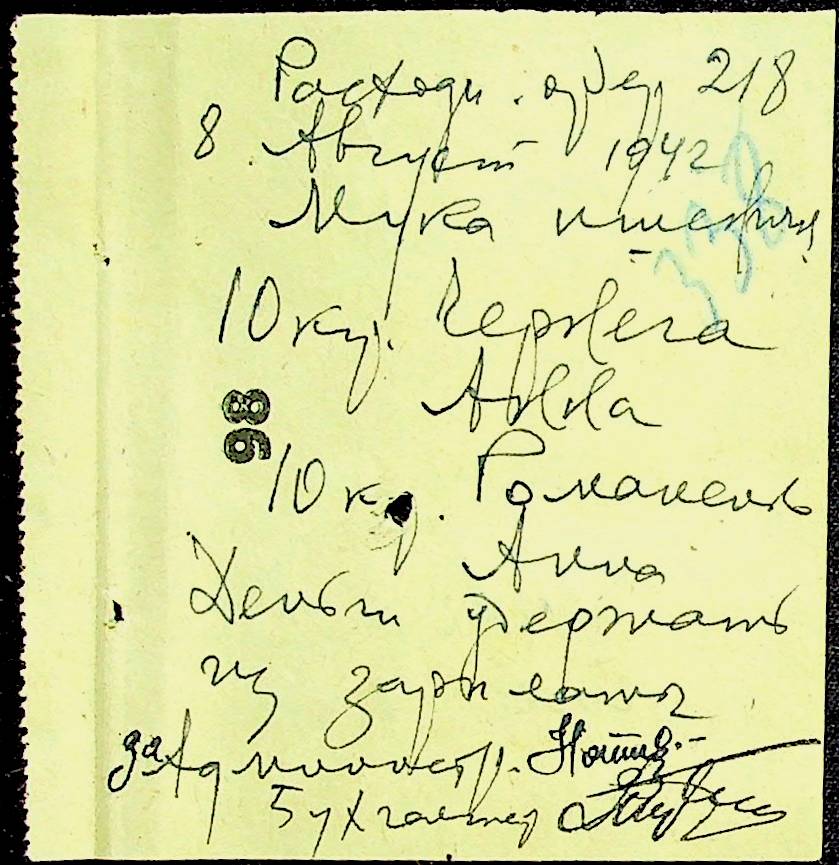 Расходн. ордер 218
8 Август 1942
338
Мука пшеничн
10 кгр. Червега
Анна
98
10 кгр. Романенко
Анна
Деньги удержать
из зарплаты
за Администр.
Бухгалтер